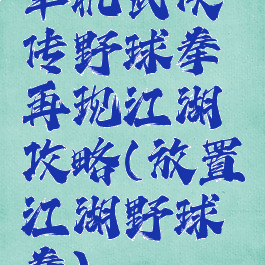 单机武侠
传野球拳
再现江湖
攻略(放置
江湖野球
拳)